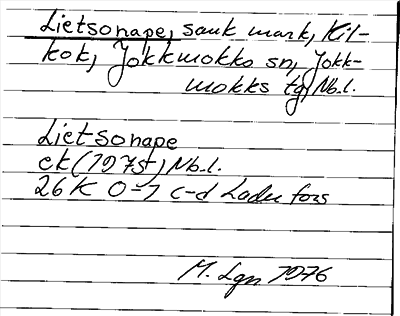 Lietsonape, sank mark, Kil-
kok, Jokkmokks sn, Jokk-
mokks tg, Nb.l.
Lietsonape
ek (1975) Nb.l.
26 K 0-1 c-d Ladu fors
M. Lgn 1976